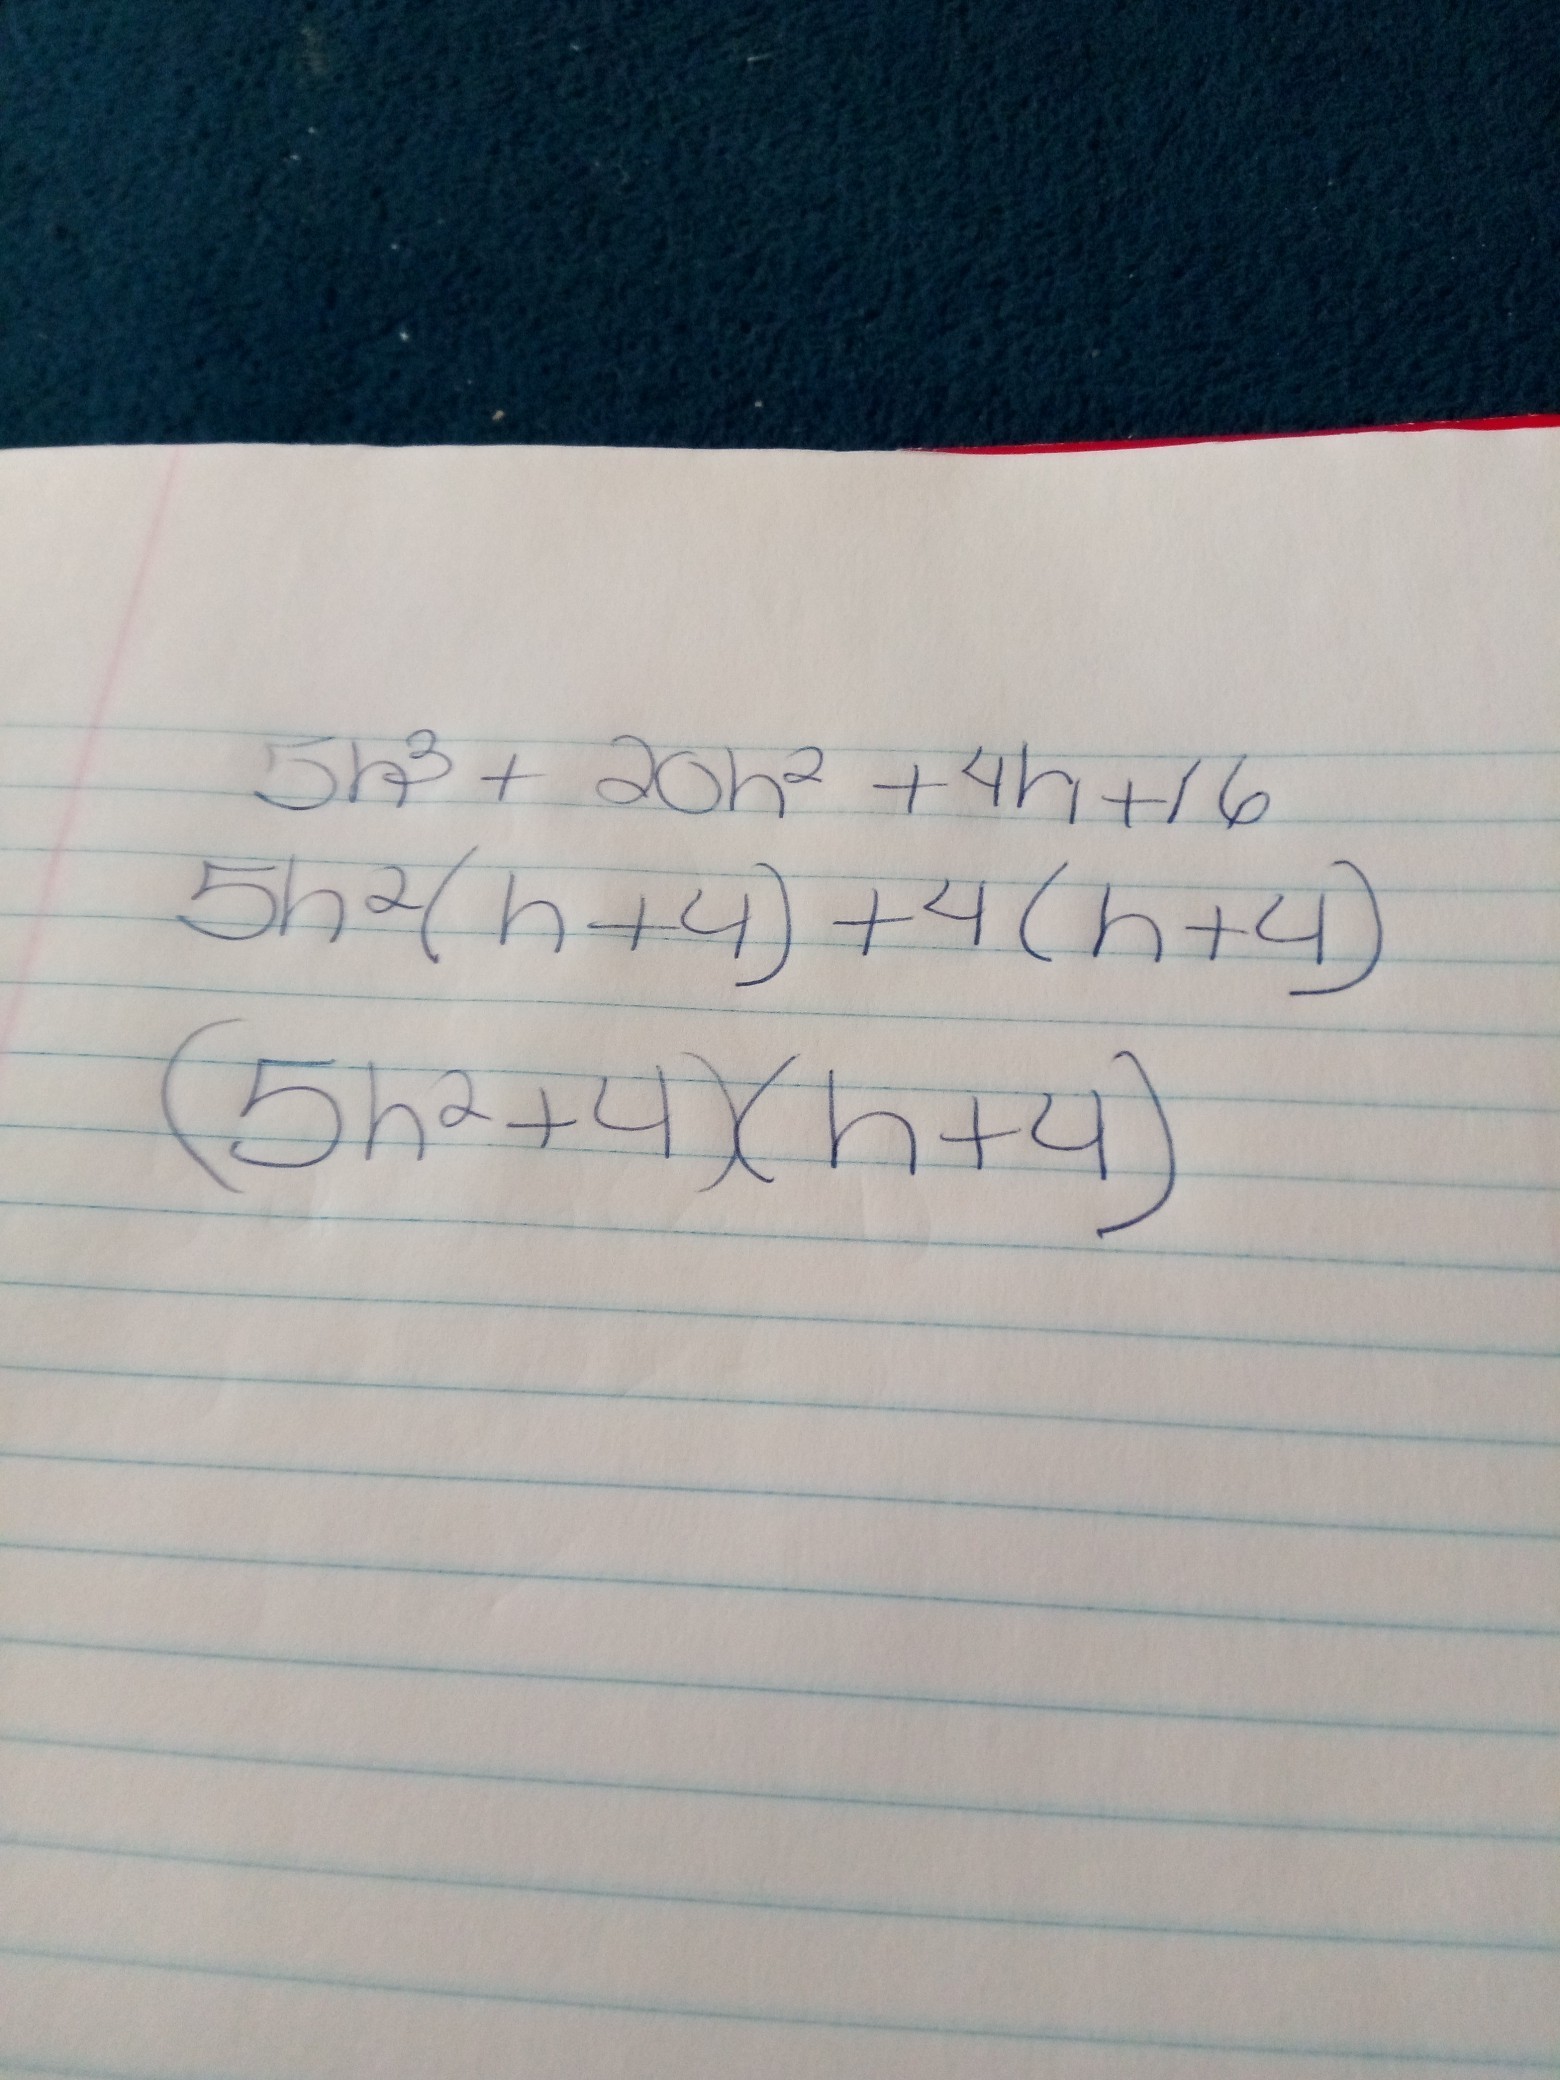 5h³ + 20h² + 4h + 16
5h²(h+4) + 4(h+4)
(5h²+4)(h+4)